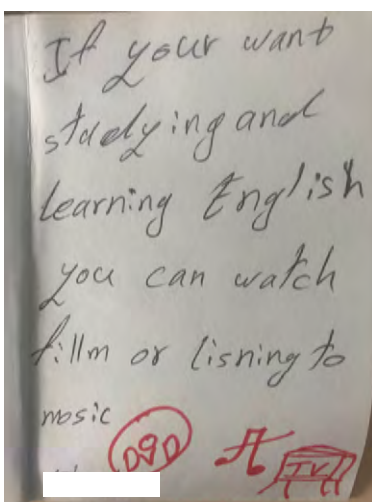 If your want
studying and
learning English
you can watch
fillm or lisning to
mosic
DVD
TV